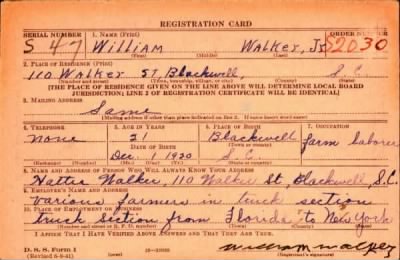 REGISTRATION CARD
SERIAL NUMBER 1. NAME (Print) ORDER NUMBER
S 47 William Walker, Jr. S2030
(First) (Middle) (Last)
2. PLACE OF RESIDENCE (Print)
110 Walker St, Blackwell, S.C.
(Number and street) (Town, township, village, or city) (County) (State)
[THE PLACE OF RESIDENCE GIVEN ON THE LINE ABOVE WILL DETERMINE LOCAL BOARD
JURISDICTION; LINE 2 OF REGISTRATION CERTIFICATE WILL BE IDENTICAL]
3. MAILING ADDRESS
Same
[Mailing address if other than place indicated on line 2. If same, insert word same]
4. TELEPHONE 5. AGE IN YEARS 6. PLACE OF BIRTH 7. OCCUPATION
none 21 Blackwell farm laborer
DATE OF BIRTH (Town or county)
Dec. 1 1920 S.C.
(Exchange) (Number) (Mo.) (Day) (Yr.) (State or country)
8. NAME AND ADDRESS OF PERSON WHO WILL ALWAYS KNOW YOUR ADDRESS
Hattie Walker, 110 Walker St, Blackwell, S.C.
9. EMPLOYER'S NAME AND ADDRESS
various farmers in truck section
10. PLACE OF EMPLOYMENT OR BUSINESS
truck section from Florida to New York
(Number and street or R. F. D. number) (Town) (County) (State)
I AFFIRM THAT I HAVE VERIFIED ABOVE ANSWERS AND THAT THEY ARE TRUE.
D. S. S. Form 1
(Revised 6-9-41) (over)
William Walker
(Registrant's signature)